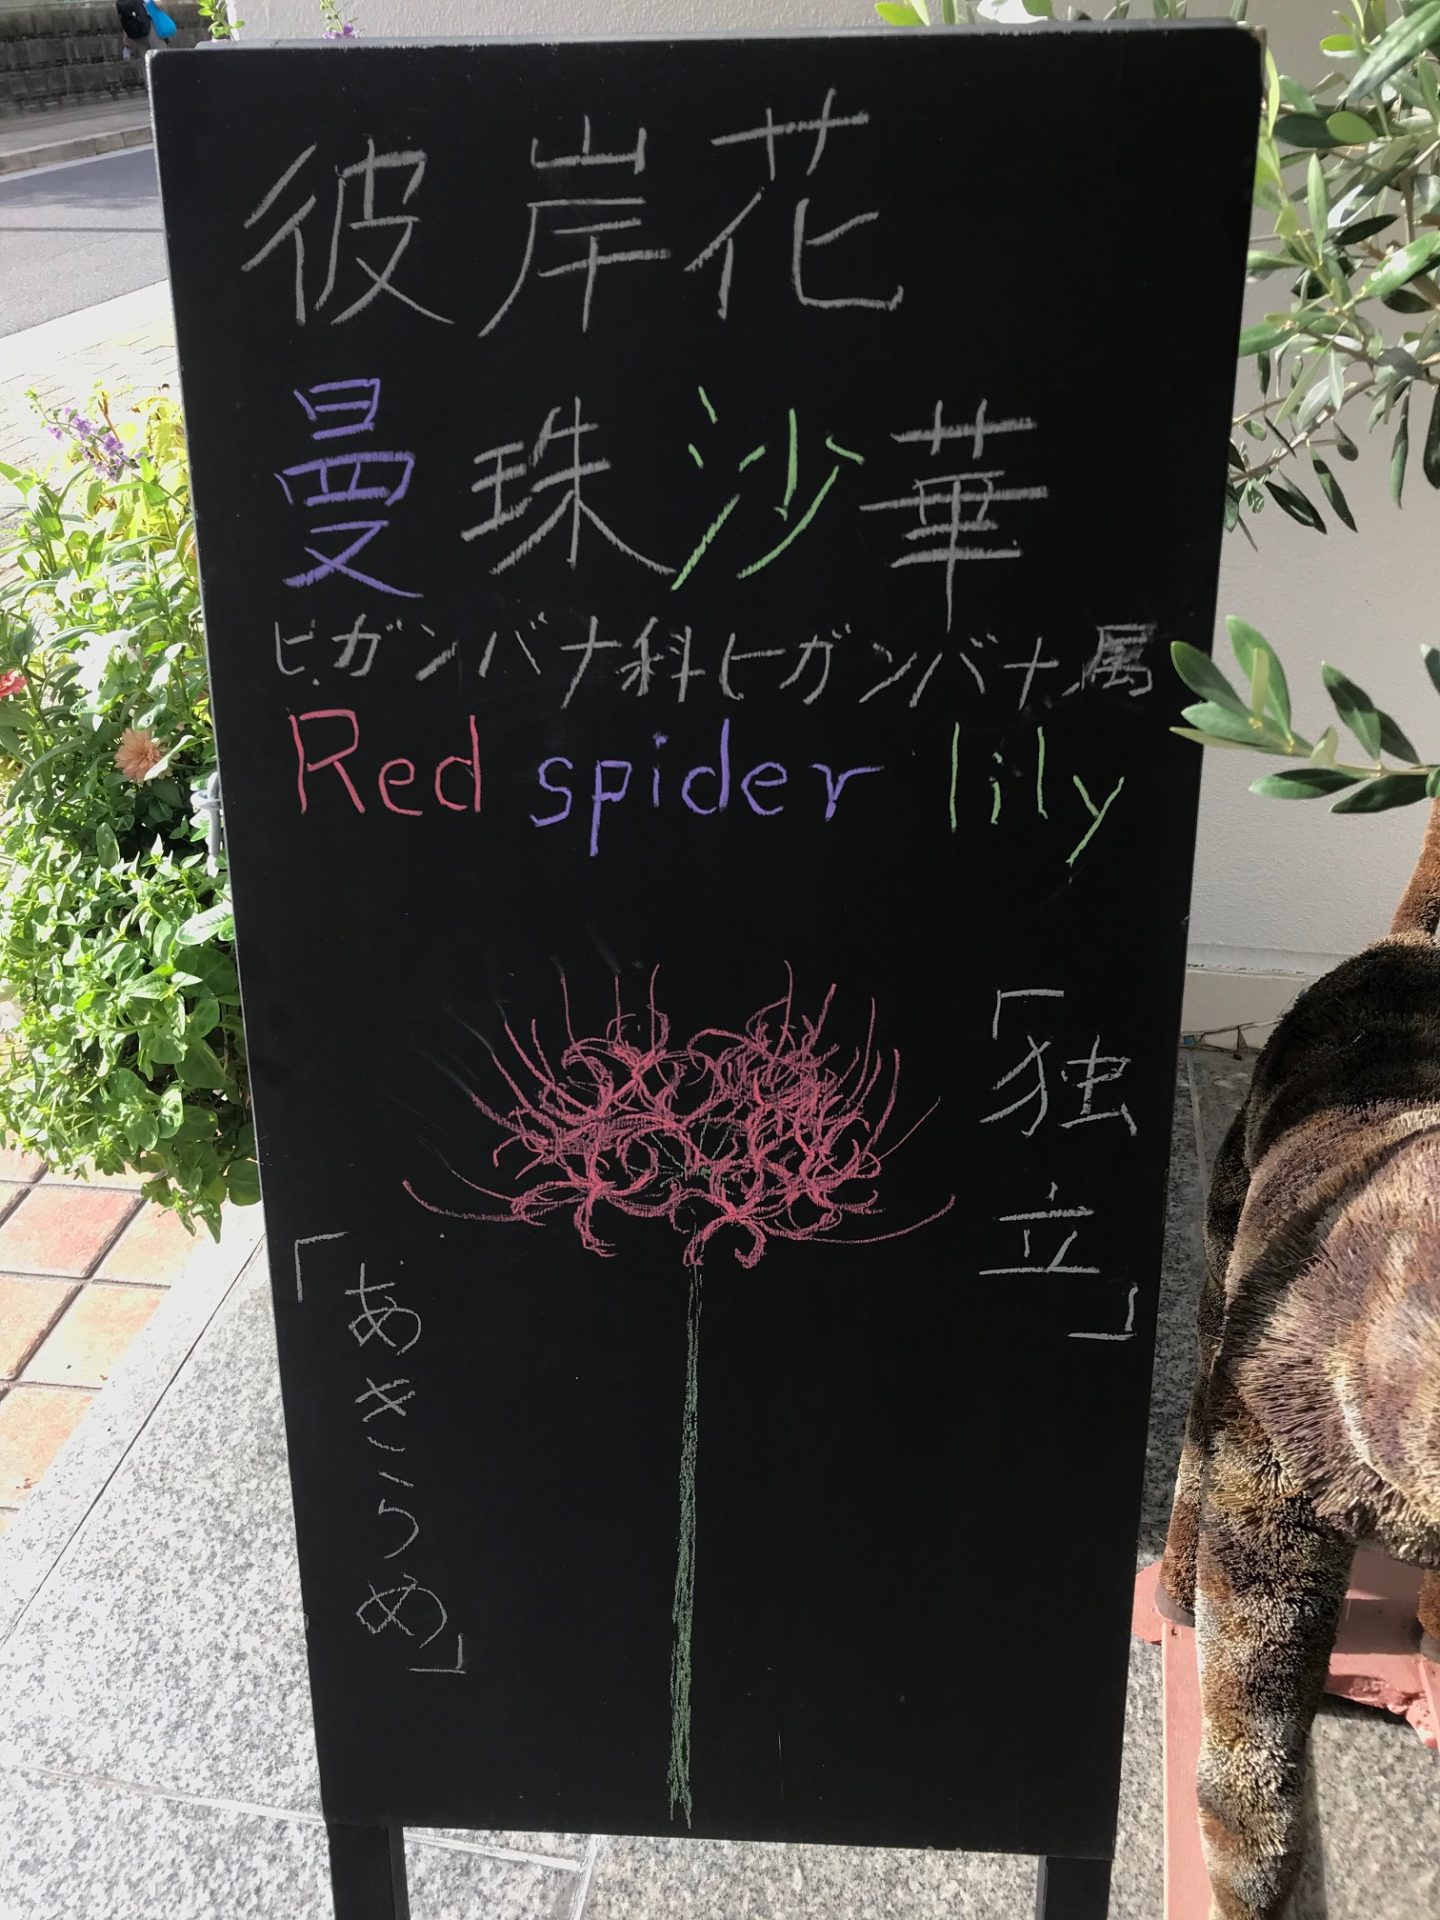 彼岸花
曼珠沙華
ヒガンバナ科ヒガンバナ属
Red spider lily
「独立」
「あきらめ」